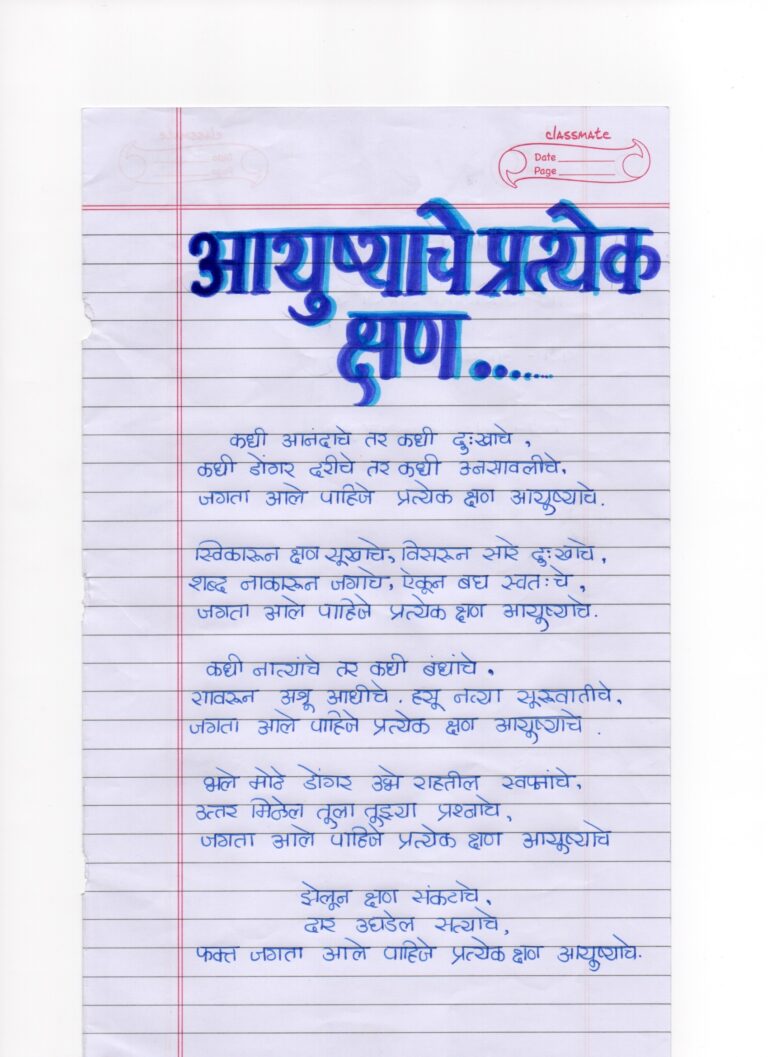 classmate
Date
Page
आयुष्याचे प्रत्येक
क्षण.......
कधी आनंदाचे तर कधी दुःखाचे,
कधी डोंगर दरीचे तर कधी उनसावलीचे.
जगता आले पाहिजे प्रत्येक क्षण आयूष्याचे.
स्विकारून क्षण सूखाचे, विसरून सारे दुःखाचे,
शब्द नाकारून जगाचे, ऐकून बघ स्वतःचे,
जगता आले पाहिजे प्रत्येक क्षण आयूष्याचे.
कधी नात्यांचे तर कधी बंधांचे.
सावरून अश्रू आधीचे. हसू नव्या सूरूवातीचे,
जगता आले पाहिजे प्रत्येक क्षण आयूष्याचे.
भले मोठे डोंगर उभे राहतील स्वप्नांचे,
उत्तर मिळेल तूला तूझ्या प्रश्नाचे,
जगता आले पाहिजे प्रत्येक क्षण आयूष्याचे
झेलून क्षण संकटाचे,
दार उघडेल सत्याचे,
फक्त जगता आले पाहिजे प्रत्येक क्षण आयूष्याचे.